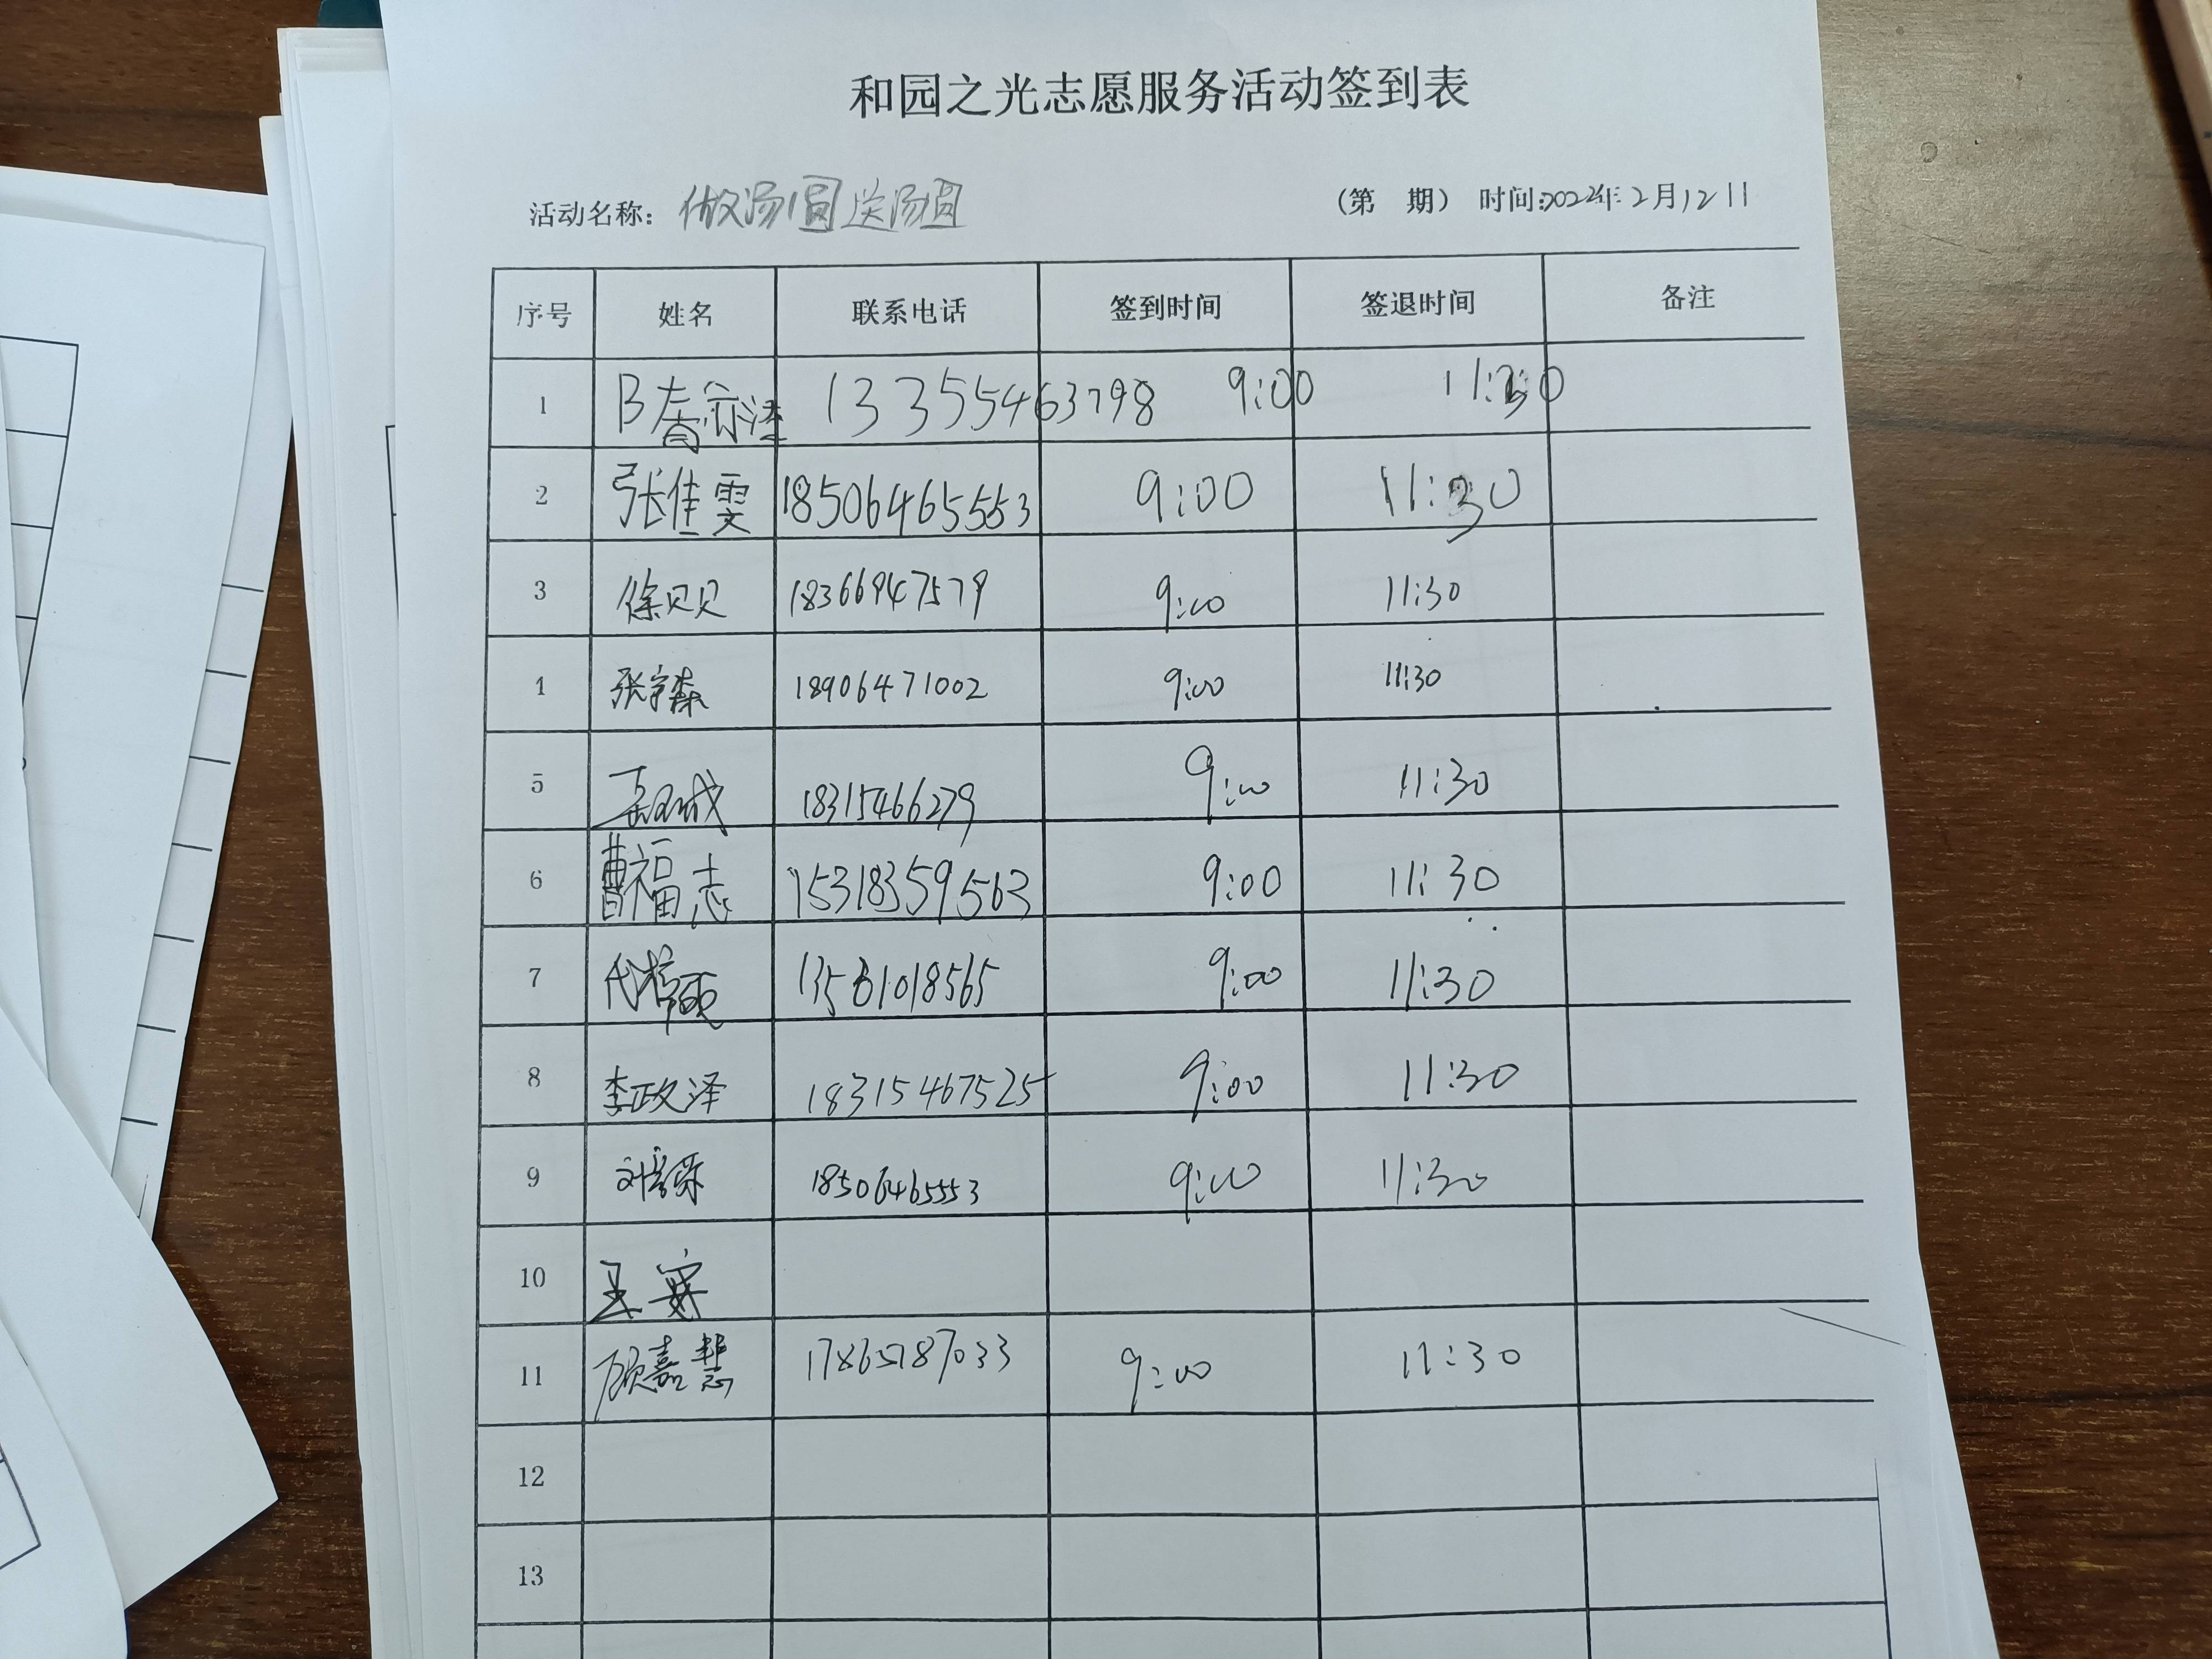 和园之光志愿服务活动签到表
活动名称：做汤圆送汤圆 （第 期） 时间:2022年2月12日
序号 姓名 联系电话 签到时间 签退时间 备注
1 13355463798 9:00 11:30
2 张佳雯 18506465553 9:00 11:30
3 徐贝贝 18366947579 9:00 11:30
1 张宇森 18906471002 9:00 11:30
5 18315466279 9:00 11:30
6 曹福志 15318359563 9:00 11:30
7 13561018565 9:00 11:30
8 李政泽 18315467525 9:00 11:30
9 18506465553 9:00 11:30
10
11 顾嘉慧 17865187033 9:00 11:30
12
13